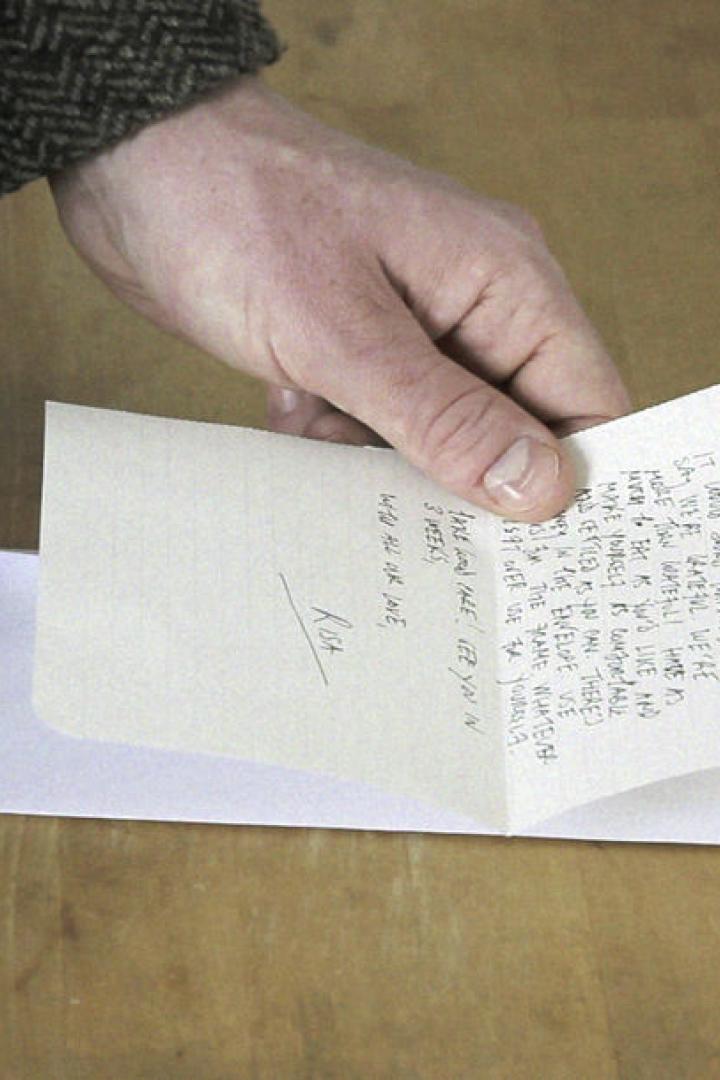 IT
SAY WE'RE GRATEFUL WE'RE
MORE THAN GRATEFUL! HAVE AS
MUCH TO EAT AS YOU'D LIKE AND
MAKE YOURSELF AS COMFORTABLE
AND SETTLED AS YOU CAN THERE'S
IN THE ENVELOPE USE
IN THE WHATEVER
LEFT OVER USE FOR YOURSELF.
TAKE GOOD CARE! SEE YOU IN
3 WEEKS,
WITH ALL OUR LOVE,
RISA